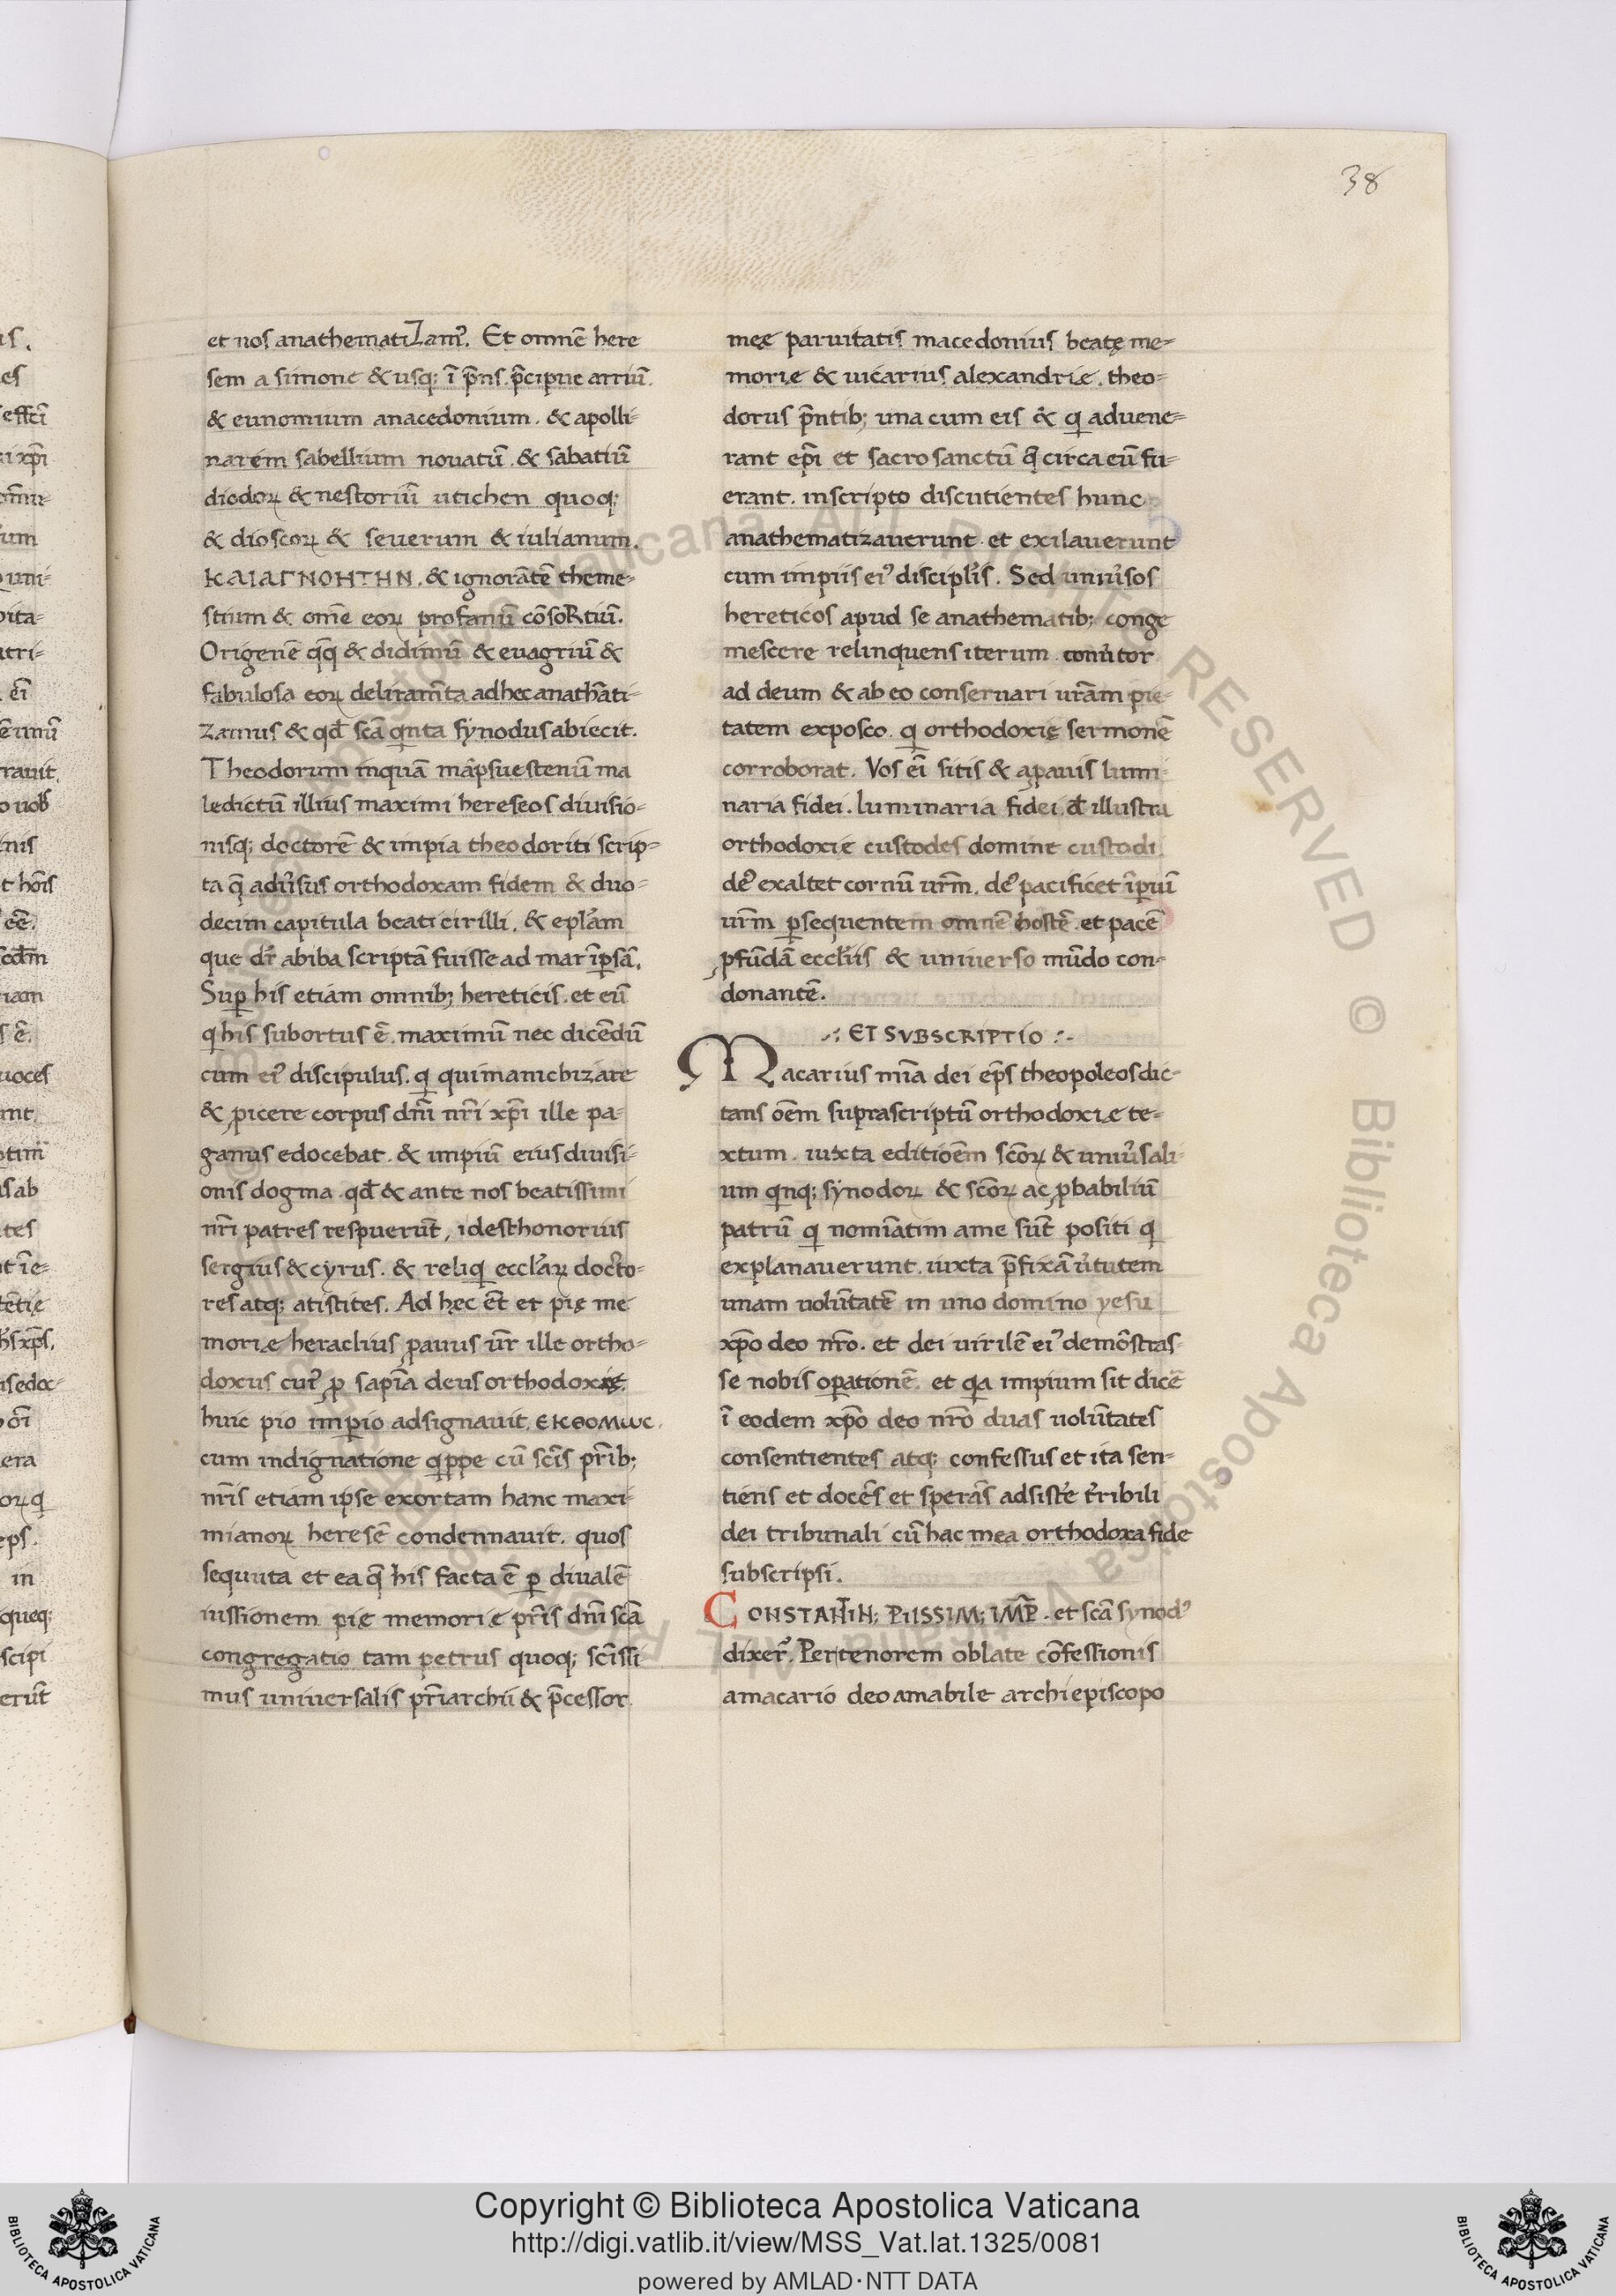 38
et nos anathematizam⁹. Et omnē here
sem a simone & usq; ī p̄ns. p̄cipue arriū.
& eunomium anacedonium. & apolli-
narem sabellium nouatū. & sabatiū
diodoꝝ & nestoriū utichen quoq;
& dioscoꝝ & seuerum & iulianum.
ΚΑΙΑΓΝΟΗΤΗΝ. & ignorātē theme-
stium & om̄e eoꝝ profanū cōsoRtiū.
Origenē q̄q̄ & didimū & euagriū &
fabulosa eoꝝ deliram̄ta adhec anathāti-
zamus & qd̄ scā qinta synodus abiecit.
Theodorum inquā māpsuestenū ma
ledictū illius maximi hereseos diuisio-
nisq; doctorē & impia theodoriti scrip-
ta q̄ adũsus orthodoxam fidem & duo-
decim capitula beati cirilli. & epl̃am
que dr̄ abiba scriptā fuisse ad mar īꝑsā.
Suꝑ his etiam omnib; hereticis. et eū
q his subortus ē. maximū nec dicēdū
cum ei⁹ discipulus. q qui manichizare
& ꝓicere corpus dn̄i nr̄i xp̄i ille pa-
ganus edocebat. & impiū eius diuisi-
onis dogma. qd̄ & ante nos beatissimi
nr̄i patres respuerūt, idest honorius
sergius & cyrus. & reliq eccl̃aꝝ docto-
res atq; atistites. Ad hęc ēt et pię me
moriæ heraclius ꝓauus ur̄ ille ortho-
doxus cui⁹ ꝓ sapīa deus orthodoxię.
huic pio imꝑio adsignauit. ΕΚΘΟΜωC.
cum indignatione qippe cū scīs pr̄ib;
nr̄is etiam ipse exortam hanc maxi-
mianoꝝ heresē condennauit. quos
sequuta et ea q̄ his facta ē ꝑ diualē
iussionem pię memorię pr̄is dn̄i scā
congregatio tam petrus quoq; scīssi
mus uniuersalis pr̄iarchii & p̄cessor
męę paruitatis macedonius beatę me-
morię & uicarius alexandrię. theo-
dorus p̄ntib; una cum eis & q aduene-
rant ep̄i et sacro sanctū q̄ circa eū fu-
erant. inscripto discutientes hunc
anathematizauerunt. et exilauerunt
cum impiis ei⁹ discipl̃is. Sed uniũsos
hereticos apud se anathematib; conge
mescere relinquens iterum conũtor
ad deum & ab eo conseruari urām pie-
tatem exposco. q orthodoxię sermonē
corroborat. Vos eī sitis & aꝓauis lumi-
naria fidei. luminaria fidei. d̄ illustra
orthodoxię custodes domine custodi.
de⁹ exaltet cornū ur̄m. de⁹ pacificet īꝑiū
ur̄m ꝑsequentem omnē hostē. et pacē
ꝓfūdā eccl̃iis & uniuerso mūdo con-
donantē.
.∴ ET SVBSCRIPTIO ∴.
Macarius mīa dei ep̄s theopoleos dic-
tans oēm suprascriptū orthodoxiæ te-
xtum. iuxta editiōem scōꝝ & uniũsali-
um qinq; synodoꝝ & scōꝝ ac ꝓbabiliū
patrū q nomīatim a me sūt positi q
explanauerunt. iuxta p̄fixā ũtutem
unam uolūtatē in uno domino yesu
xp̄o deo nr̄o. et dei uirilē ei⁹ demōstras-
se nobis oꝑationē. et qia impium sit dicē
ī eodem xp̄o deo nr̄o duas uolūtates
consentientes atq; confessus et ita sen-
tiens et docēs et sperās adsistẽ tẽribili
dei tribunali cū hac mea orthodoxa fide
subscripsi.
CONSTANTIN; PIISSIM; IMP̄. et scā synod⁹
dixer̄. Per tenorem oblate cōfessionis
amacario deo amabile archiepiscopo
Copyright © Biblioteca Apostolica Vaticana
http://digi.vatlib.it/view/MSS_Vat.lat.1325/0081
powered by AMLAD·NTT DATA